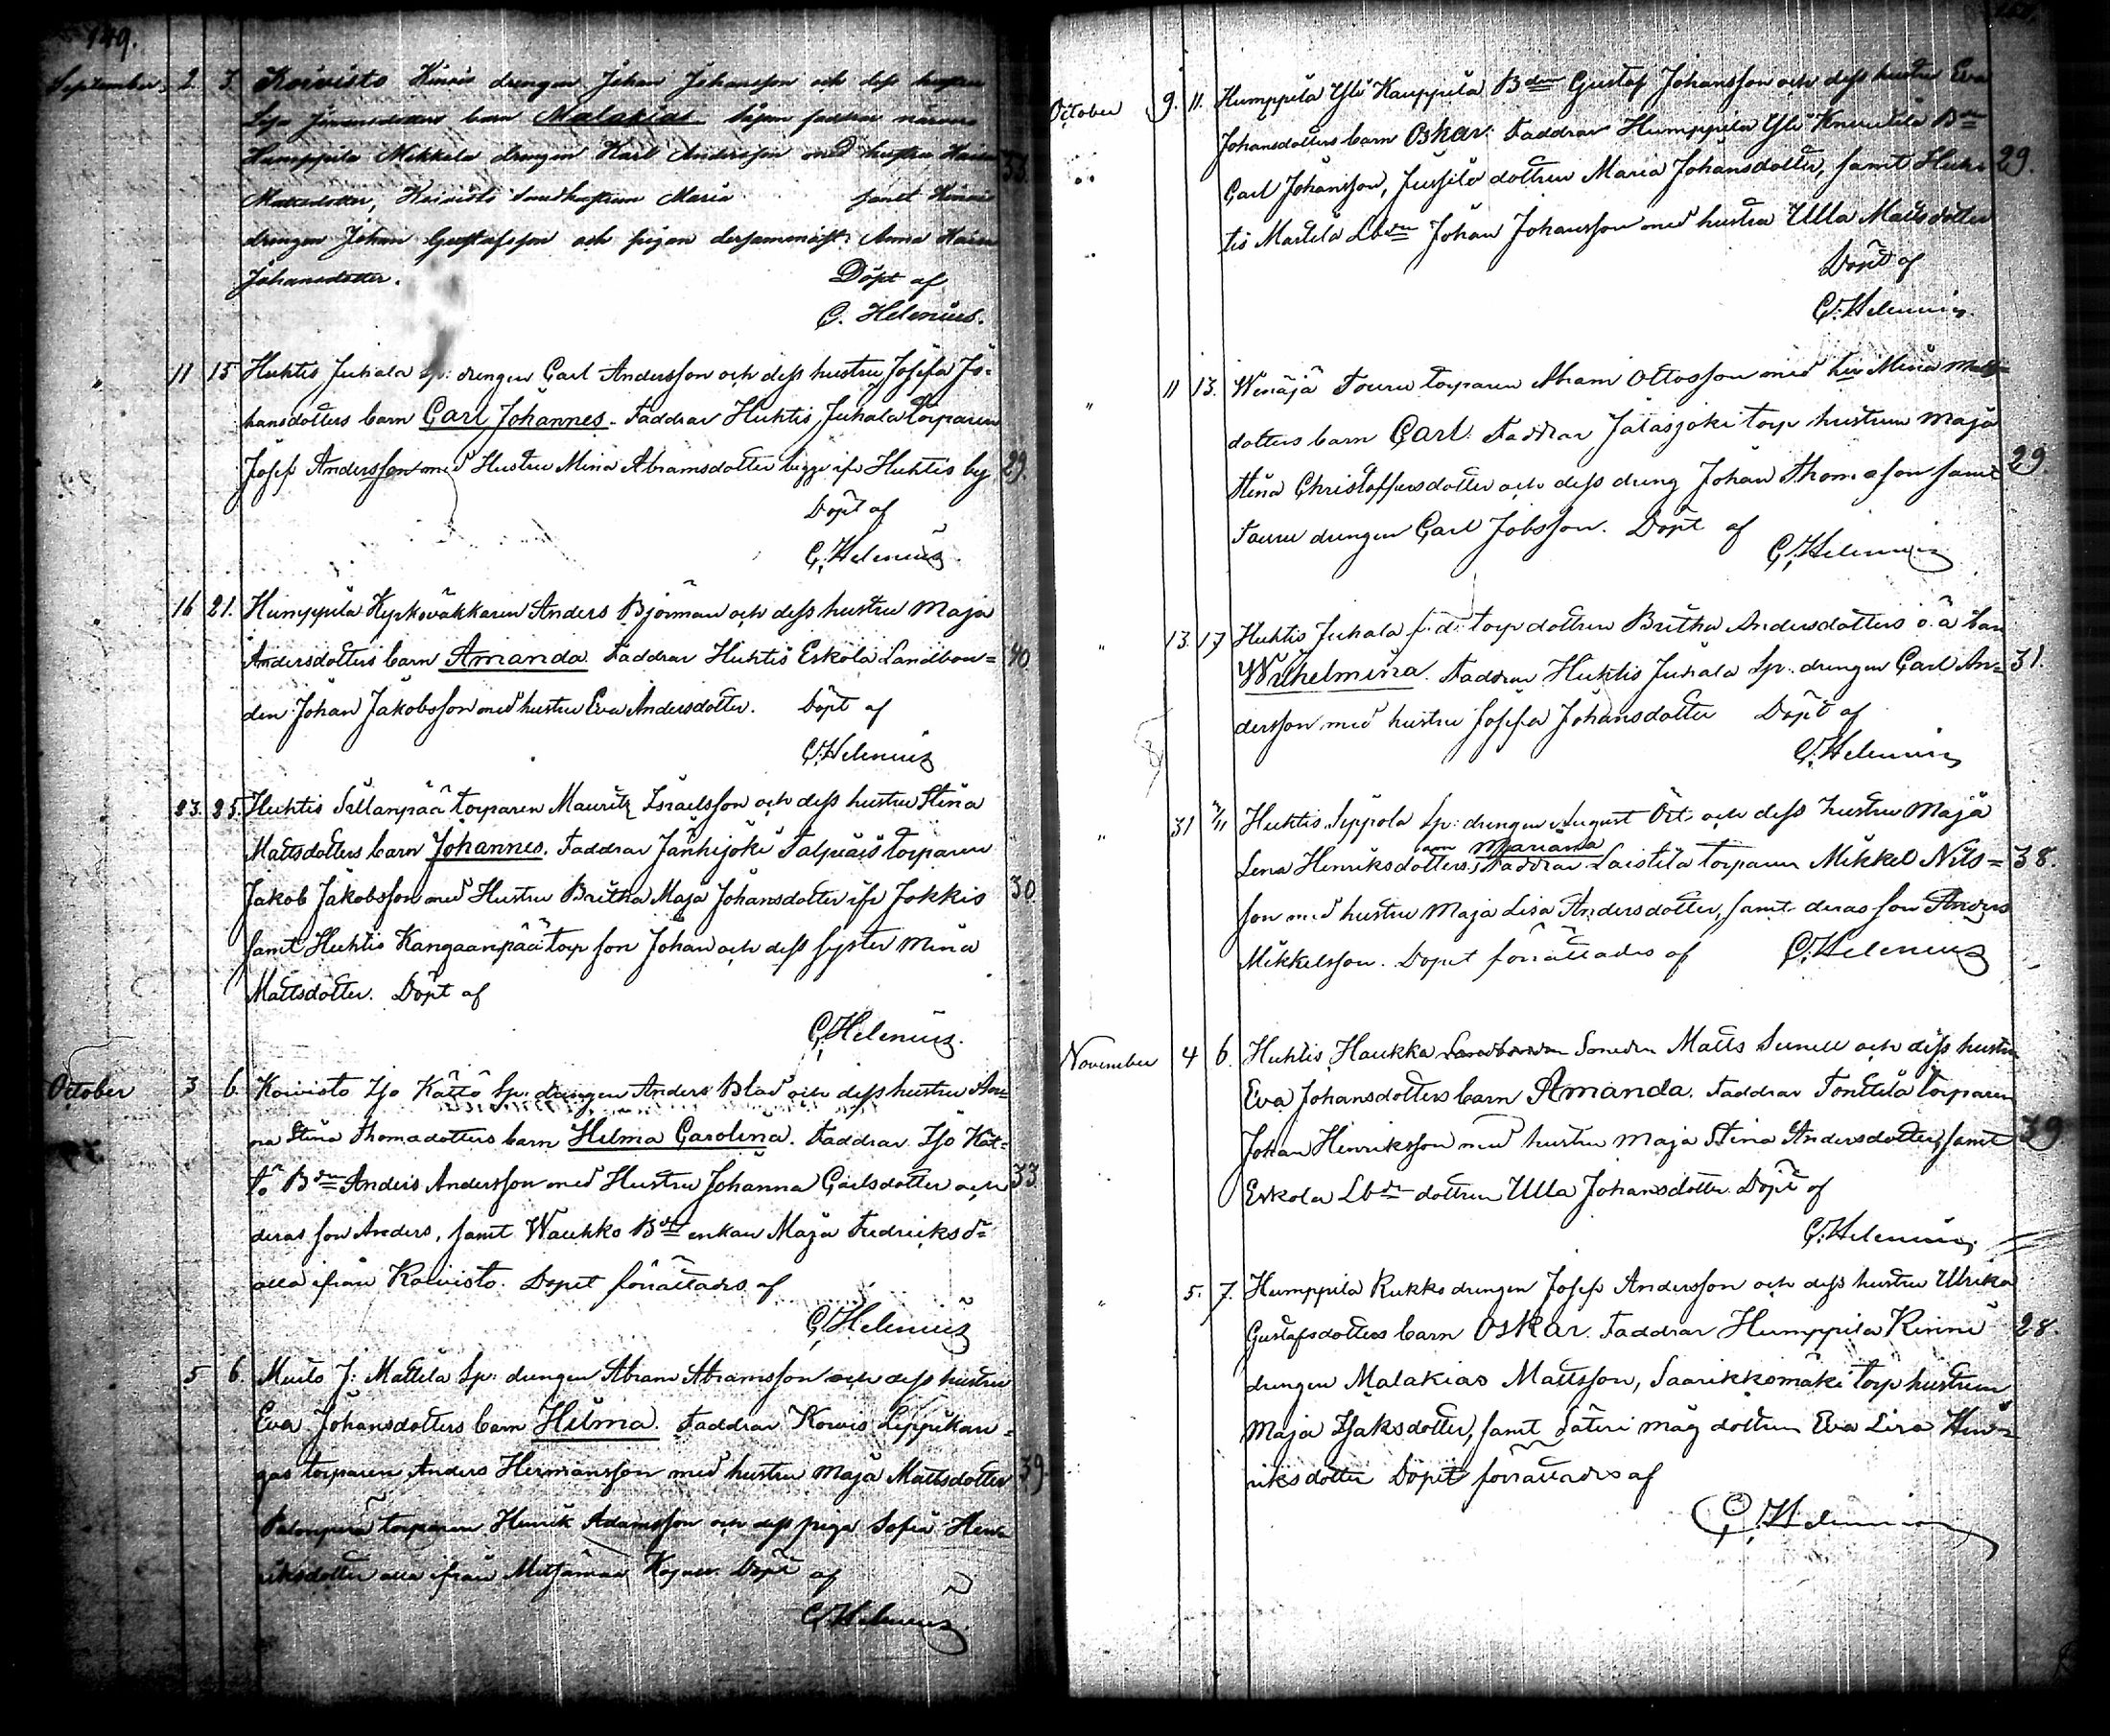 149.
September 2. 3. Koivisto Kinais drengen Johan Johansson och dess hustru
Lisa barn Malakias faddrar
Humppila Mikkala drengen Karl Andersson med hustru Maria 53.
Koivisto Maria samt
drengen Johan Gustafsson och pigan dersammast. Anna Maria
Johansdotter. Döpt af
C. Helenius.
" 11 15 Huhtis Juhala Sp: drengen Carl Andersson och dess hustru Josefa Jo=
hansdotters barn Carl Johannes. Faddrar Huhtis, Juhala Torparen
Josef Andersson med Hustru Mina Abramsdotter begge ifr Huhtis by 29.
Döpt af
C. Helenius
16 21. Humppila Kyrkoväkkaren Anders Björman och dess hustru Maja
Andersdotters barn Amanda. Faddrar Huhtis Eskola Landbon= 40
den Johan Jakobsson med hustru Eva Andersdotter. Döpt af
C. Helenius
23. 25. Huhtis Sillanpää torparen Mauritz Israelsson och dess hustru Stina
Mattsdotters barn Johannes. Faddrar Jänhijoki Talpiais torparen
Jakob Jakobsson med Hustru Britha Maja Johansdotter ifr Jokkis 30
samt Huhtis Kangaanpää torp son Johan och dess syster Mina
Mattsdotter. Döpt af
C. Helenius.
October 3 6. Koivisto Iso Kättö Sp. drengen Anders Blad och dess hustru An=
na Stina Thomadotters barn Hilma Carolina. Faddrar Iso Kät=
tö Bdn Anders Andersson med Hustru Johanna Carlsdotter och 33
deras son Anders, samt Waukko Bde enkan Maja Fredriksdr
alla ifrån Koivisto. Dopet förrättades af
C. Helenius
5 6. Murto J: Mattila Sp: drengen Abram Abramsson och dess hustru
Eva Johansdotters barn Hilma. Faddrar Kowis Leppikan=
gas torparen Anders Hermansson med hustru Maja Mattsdotter 39.
torparen Henrik Adamsson och dess piga Sofia Hen
riksdotter alla ifrån Döpt af
C. Helenius
October 9. 11. Humppila Yli Kauppila Bden Gustaf Johansson och dess hustru Eva
Johansdotters barn Oskar. Faddrar Humppila Yli Knuutila Bde
Carl Johansson, Jussila dottren Maria Johansdotter, samt Huh= 29.
tis Martila Lbdn Johan Johansson med hustru Ulla Mattsdotter
Döpt af
C. Helenius.
" 11 13. Wenäjä Touru torparen Abam Ottosson med hu Mina Matts=
dotters barn Carl. Faddrar Jalasjoki torp hustrun Maja
Stina Christoffersdotter och dess dreng Johan Thomasson samt 29.
Touru drengen Carl Jobsson. Döpt af
C. Helenius
" 13 17 Huhtis Juhala f.d: torp dottren Britha Andersdotters o. ä barn
Wilhelmina. Faddrar Huhtis Juhala Sp. drengen Carl An= 31.
dersson med hustru Josefa Johansdotter Döpt af
C. Helenius
" 31 2/11 Huhtis Seppola Sp: drengen August Öst och dess hustru Maja
barn Mariana
Lena Henriksdotters, Faddrar Laistila torparen Mikkel Nils= 38.
son med hustru Maja Lisa Andersdotter, samt deras son Anders
Mikkelsson. Dopet förrättades af C. Helenius
November 4 6. Huhtis Haukka Landbonden Smeden Matts Sunell och dess hustru
Eva Johansdotters barn Amanda. Faddrar Tonttila torparen
Johan Henriksson med hustru Maja Stina Andersdotter, samt 39
Eskola Lbde dottren Ulla Johansdotter. Döpt af
C. Helenius.
" 5. 7. Humppila Kukko drengen Josef Andersson och dess hustru Ulrika
Gustafsdotters barn Oskar. Faddrar Humppila Rinni 28.
drengen Malakias Mattsson, Saarikkomäki torp hustrun
Maja Isaksdotter, samt Säteri måg dottren Eva Lisa Hen=
riksdotter Dopet förrättades af
C. Helenius